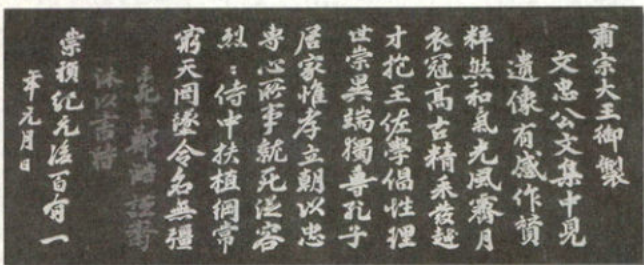 肅宗大王御製
文忠公文集中見
遺像有感作讃
粹然和氣光風霽月
衣冠高古精采發越
才抱王佐學倡性理
世崇異端獨尊孔子
居家惟孝立朝以忠
專心所事就死從容
烈〻侍中扶植綱常
窮天罔墜令名無疆
沐以書
崇禎紀元後百有一
年元月日